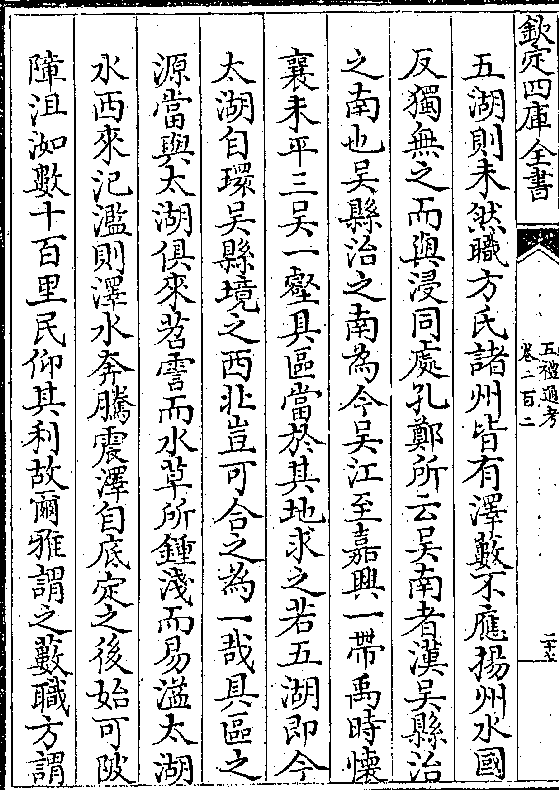 欽定四庫全書
五禮通考
卷二百二
二十六
五湖則未然職方氏諸州皆有澤藪不應揚州水國
反獨無之而與浸同處孔鄭所云吴南者漢吴縣治
之南也吴縣治之南為今吴江至嘉興一帶禹時懷
襄未平三吴一壑具區當於其地求之若五湖即今
太湖自環吴縣境之西北豈可合之為一哉具區之
源當與太湖俱來苕霅而水草所鍾淺而易溢太湖
水西來汜濫則澤水奔騰震澤自底定之後始可陂
障沮洳數十百里民仰其利故爾雅謂之藪職方謂